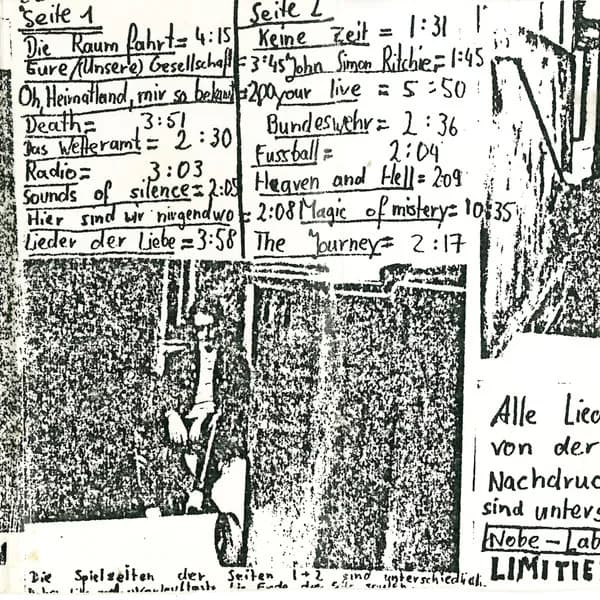 Seite 1
Die Raumfahrt= 4:15
Eure/(Unsere) Gesellschaft= 3:45
Oh, Heimatland, mir so bekannt=2:00
Death= 3:51
Das Wetteramt= 2:30
Radio= 3:03
Sounds of silence= 2:05
Hier sind wir nirgendwo = 2:08
Lieder der Liebe = 3:58
Seite 2
Keine Zeit = 1:31
John Simon Ritchie= 1:45
your live = 5:50
Bundeswehr= 2:36
Fussball= 2:04
Heaven and Hell= 2:09
Magic of mistery= 10:35
The Journey= 2:17
Alle Lied
von der
Nachdruc
sind unters
Nobe-Lab
LIMITIE
Die Spielzeiten der Seiten 1+2 sind unterschiedlich.